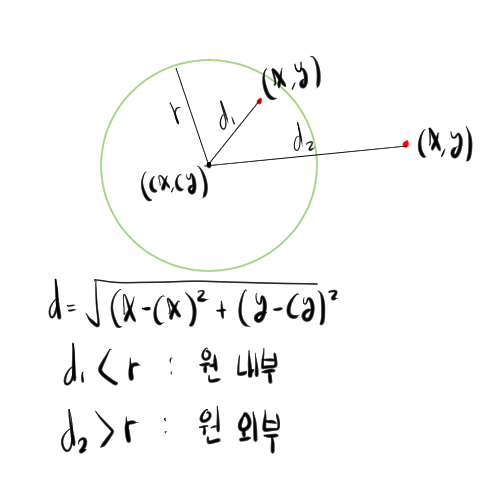 (x,y)
r
d₁
d₂
(x,y)
(cx,cy)
d=√(x-cx)²+(y-cy)²
d₁<r : 원 내부
d₂>r : 원 외부